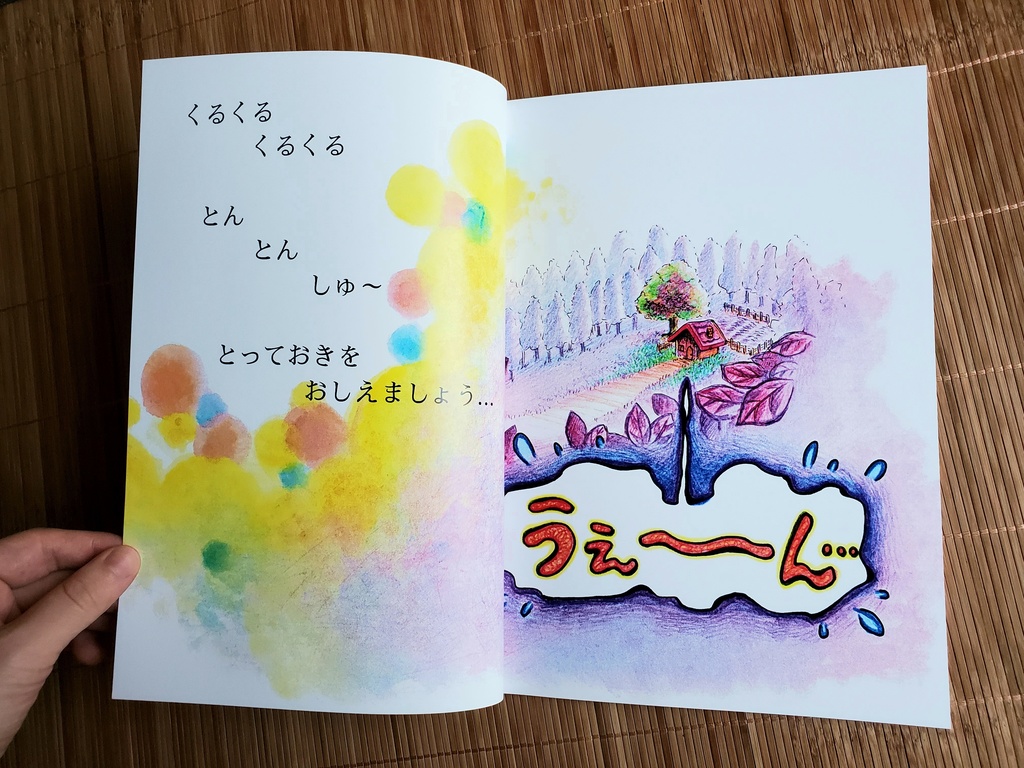 くるくる
くるくる
とん
とん
しゅ～
とっておきを
おしえましょう...
うぇ～ん...